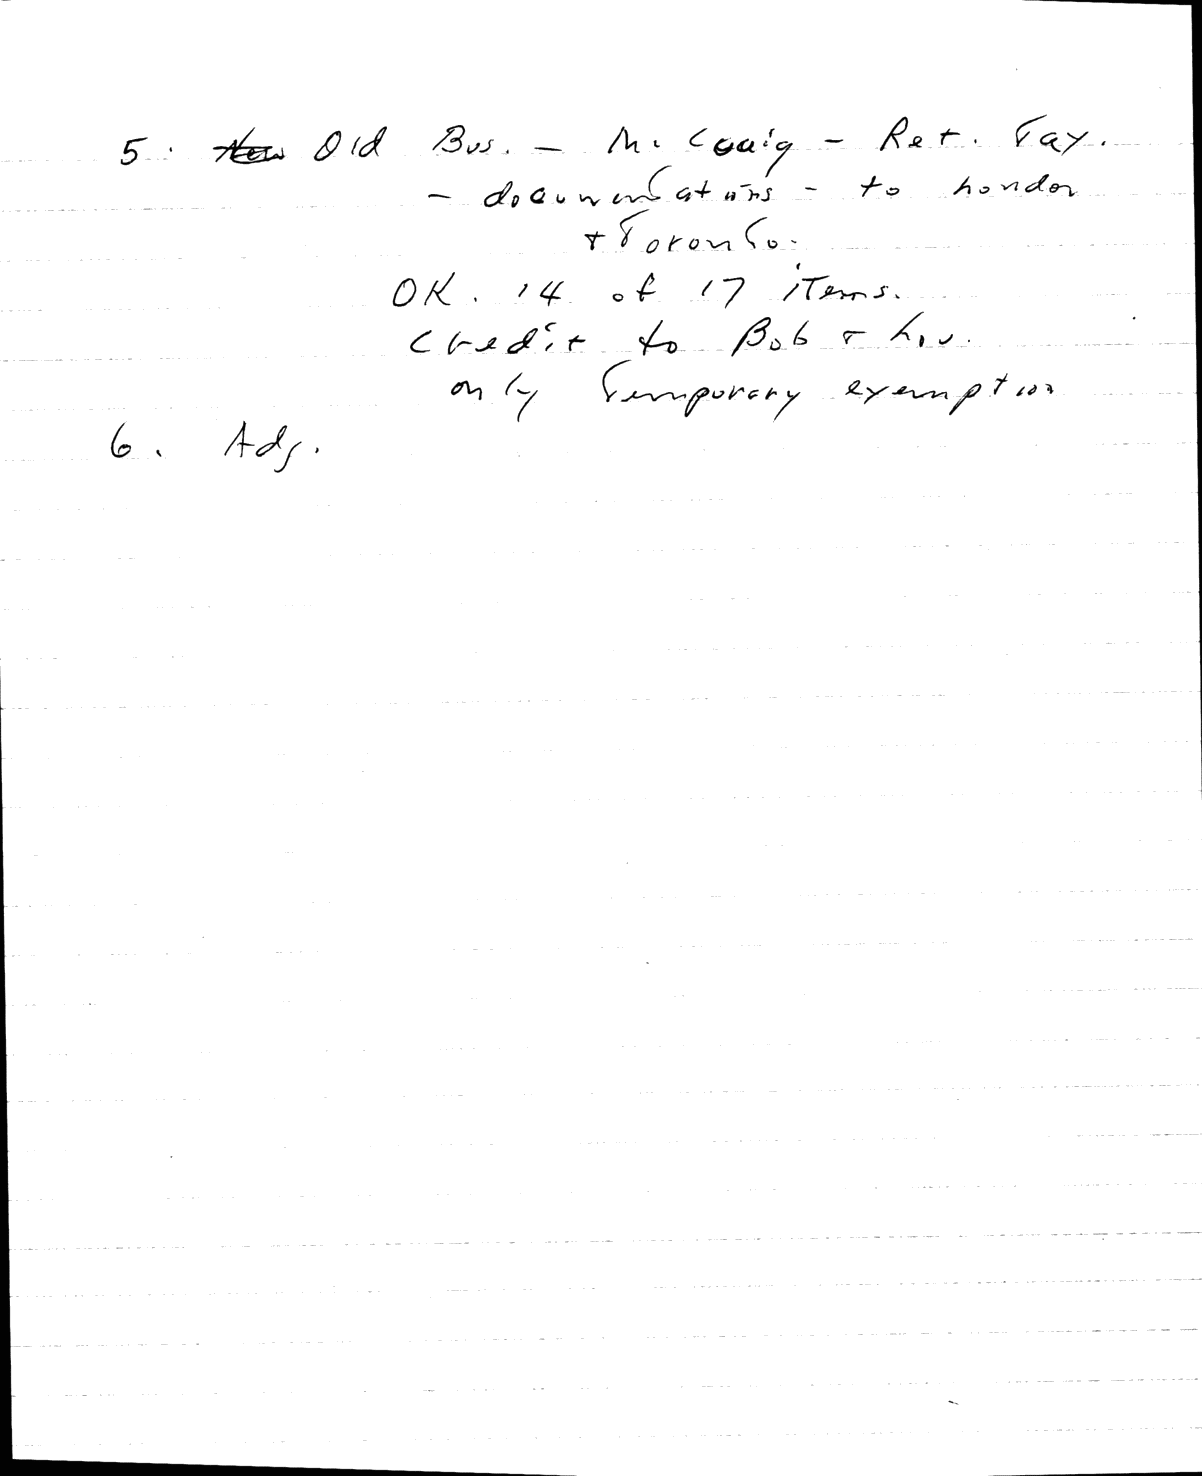 5. New Old Bus. - McCuaig - Ret. Tax.
- documentations - to London
+ Toronto.
OK. 14 of 17 items.
Credit to Bob + Lou.
only Temporary exemption
6. Adj.